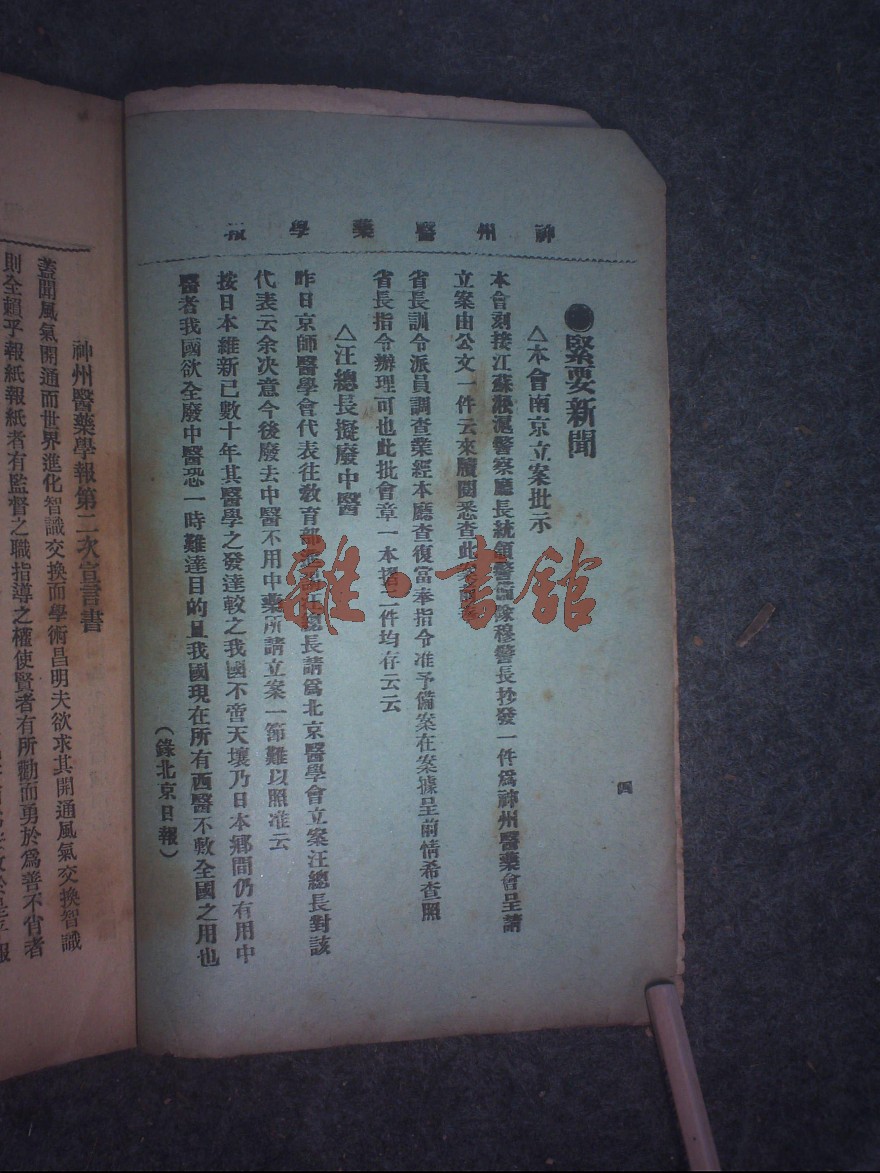 神州醫藥學報
緊要新聞
△本會南京立案批示
本會刻接江蘇淞滬警察廳長統領警備隊穆警長抄發一件爲神州醫藥會呈請
立案由公文一件云來牘閱悉查此案
省長訓令派員調查業經本廳查復當奉指令准予備案在案據呈前情希查照
省長指令辦理可也此批會章一本摺二件均存云云
△汪總長擬廢中醫
昨日京師醫學會代表往敎育部進謁汪總長請爲北京醫學會立案汪總長對該
代表云余决意今後廢去中醫不用中藥所請立案一節難以照准云
按日本維新已數十年其醫學之發達較之我國不啻天壤乃日本鄉間仍有用中
醫者我國欲全廢中醫恐一時難達目的且我國現在所有西醫不敷全國之用也
（錄北京日報）
四
神州醫藥學報第二次宣言書
蓋開風氣開通而世界進化智識交換而學術昌明夫欲求其開通風氣交換智識
則全賴乎報紙報紙者有監督之職指導之權使賢者有所勸而勇於爲善不肖者
雜·書館